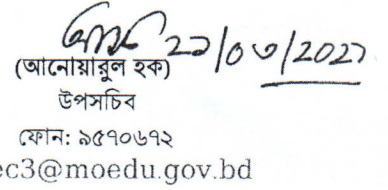 ২১/০৩/2021
(আনোয়ারুল হক)
উপসচিব
ফোন: ৯৫৭০৬৭২
ec3@moedu.gov.bd